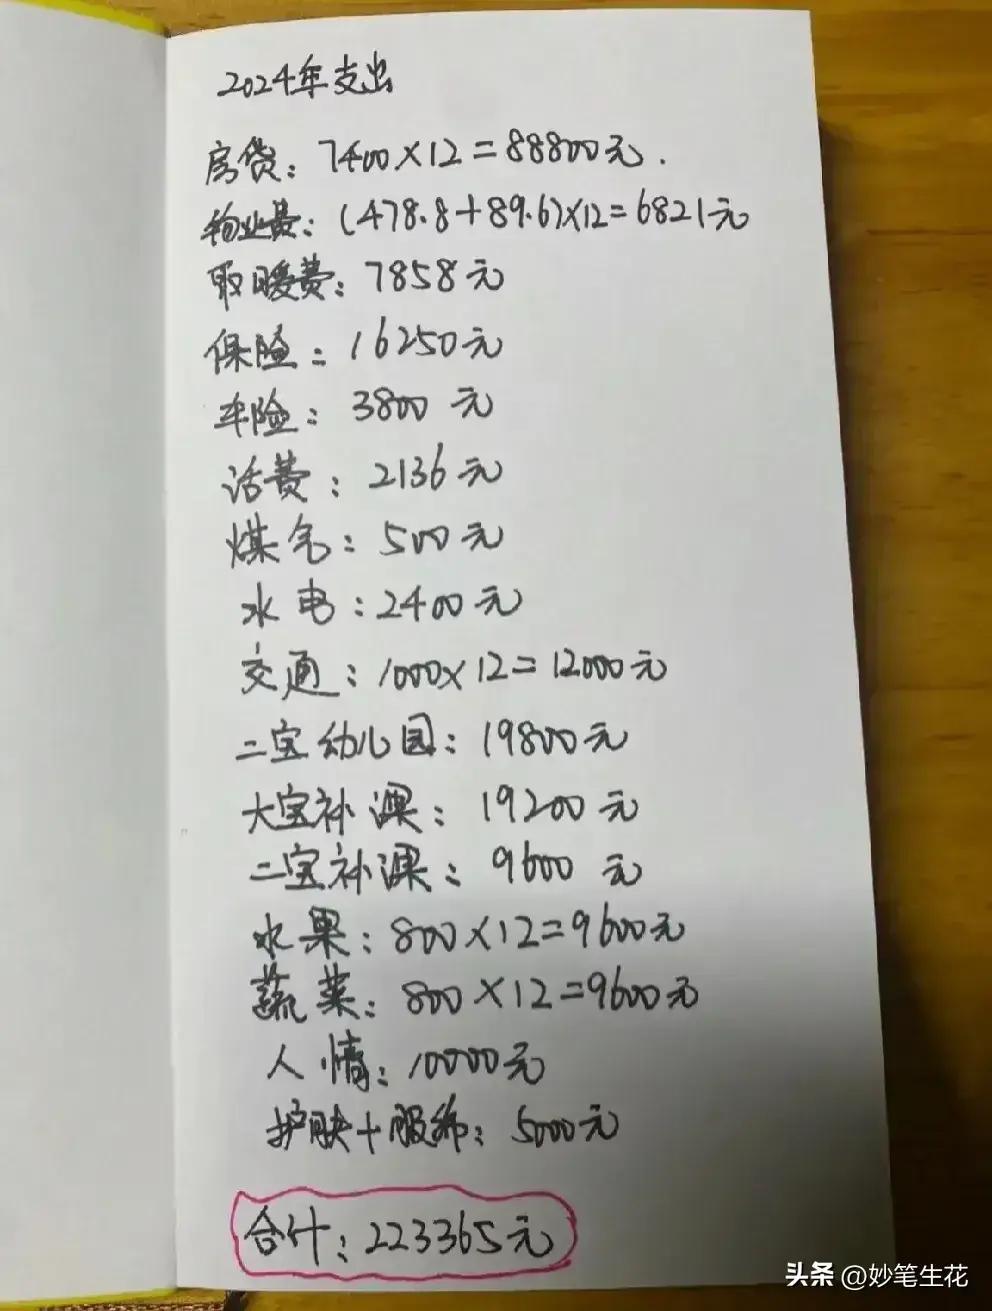 2024年支出
房贷：7400×12=88800元.
物业费：(478.8+89.6)×12=6821元
取暖费：7858元
保险：16250元
车险：3800元
话费：2136元
煤气：500元
水电：2400元
交通：1000×12=12000元
二宝幼儿园：19800元
大宝补课：19200元
二宝补课：9600元
水果：800×12=9600元
蔬菜：800×12=9600元
人情：10000元
护肤+服饰：5000元
合计：223365元
头条 @妙笔生花